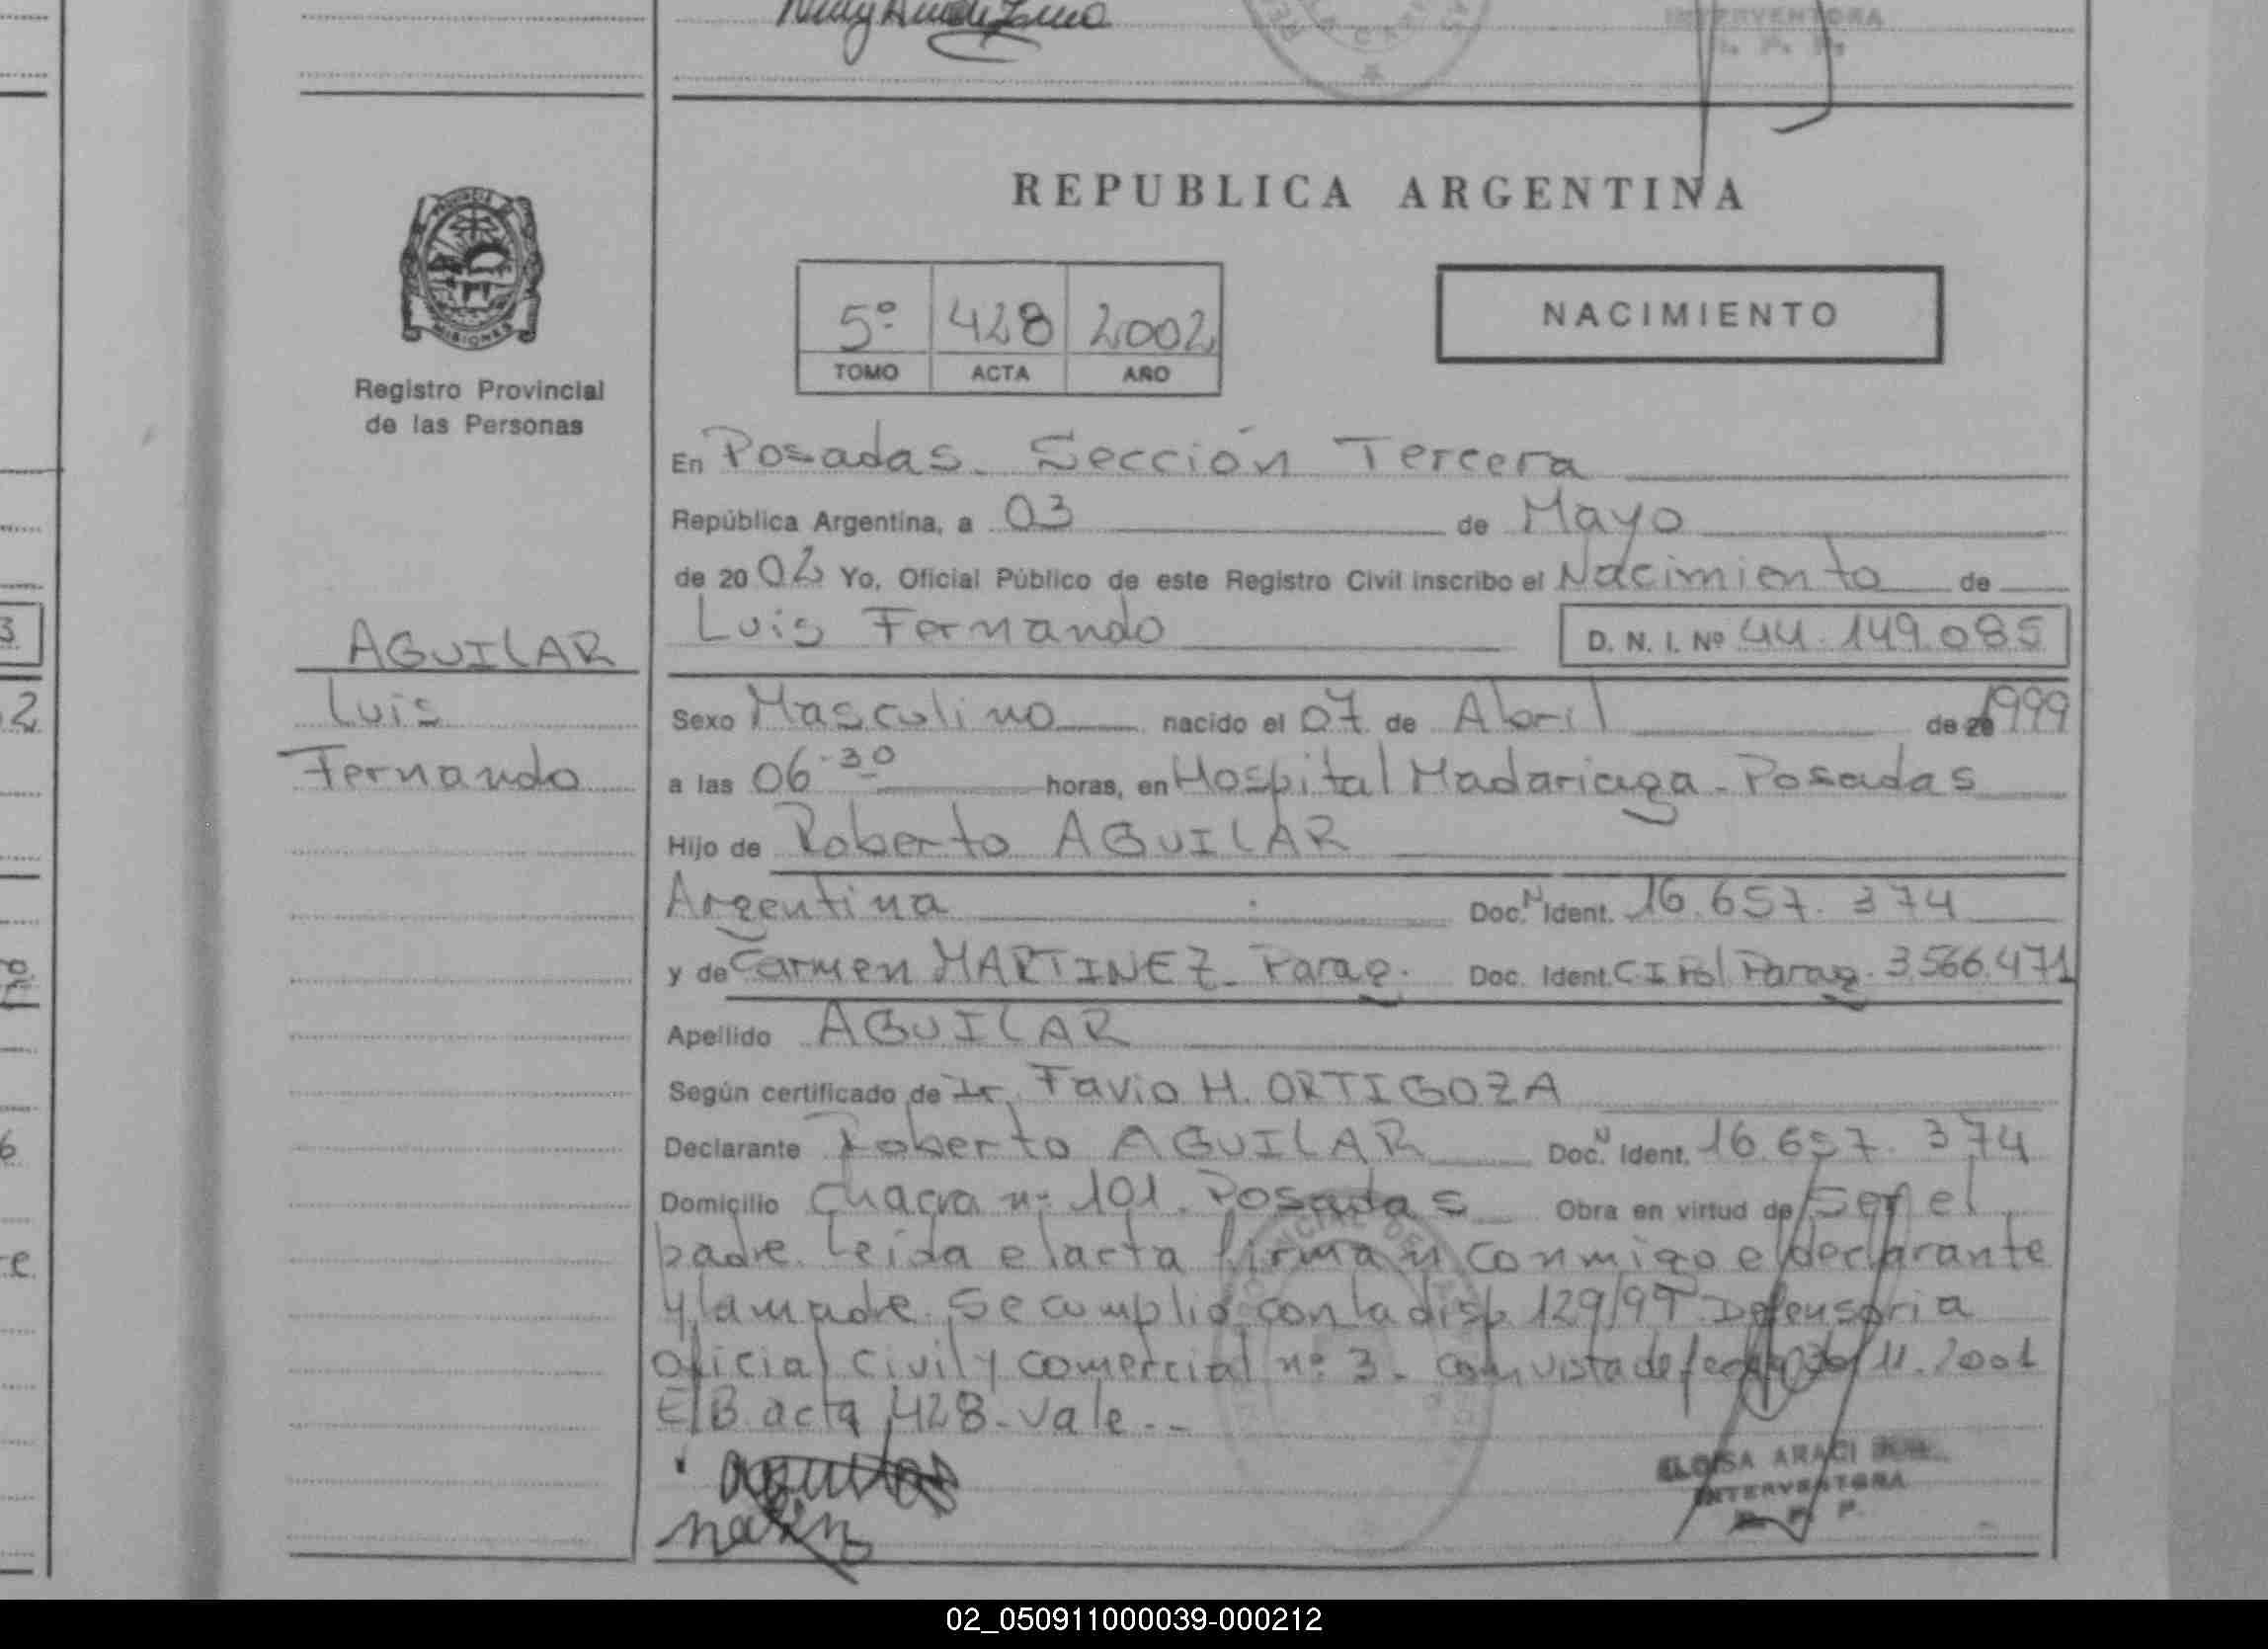 INTERVENTORA
R. P. P.
REPUBLICA ARGENTINA
PROVINCIA DE
MISIONES
5º 428 2002
TOMO ACTA AÑO
NACIMIENTO
Registro Provincial
de las Personas
En Posadas. Sección Tercera
República Argentina, a 03 de Mayo
de 2002 Yo, Oficial Público de este Registro Civil inscribo el Nacimiento de
Luis Fernando D. N. I. Nº 44.149.085
AGUILAR
Luis
Fernando
Sexo Masculino nacido el 07 de Abril de 20 1999
a las 06-30 horas, en Hospital Madariaga - Posadas
Hijo de Roberto AGUILAR
Argentina Doc. N Ident. 16.657.374
y de Carmen MARTINEZ - Parag. Doc. Ident. C I Pol Parag. 3.566.471
Apellido AGUILAR
Según certificado de Dr. Favio H. ORTIGOZA
Declarante Roberto AGUILAR Doc. N Ident. 16.657.374
Domicilio Chacra nº 101. Posadas Obra en virtud de Ser el
padre. Leida el acta firman conmigo el declarante
y la madre. Se cumplio con la disp 129/97 Defensoria
Oficial Civil y Comercial nº 3. con vista de fecha 30/11.2001
E/B. acta 428 - Vale. - -
ELOISA ARACI
INTERVENTORA
R. P. P.
02_050911000039-000212